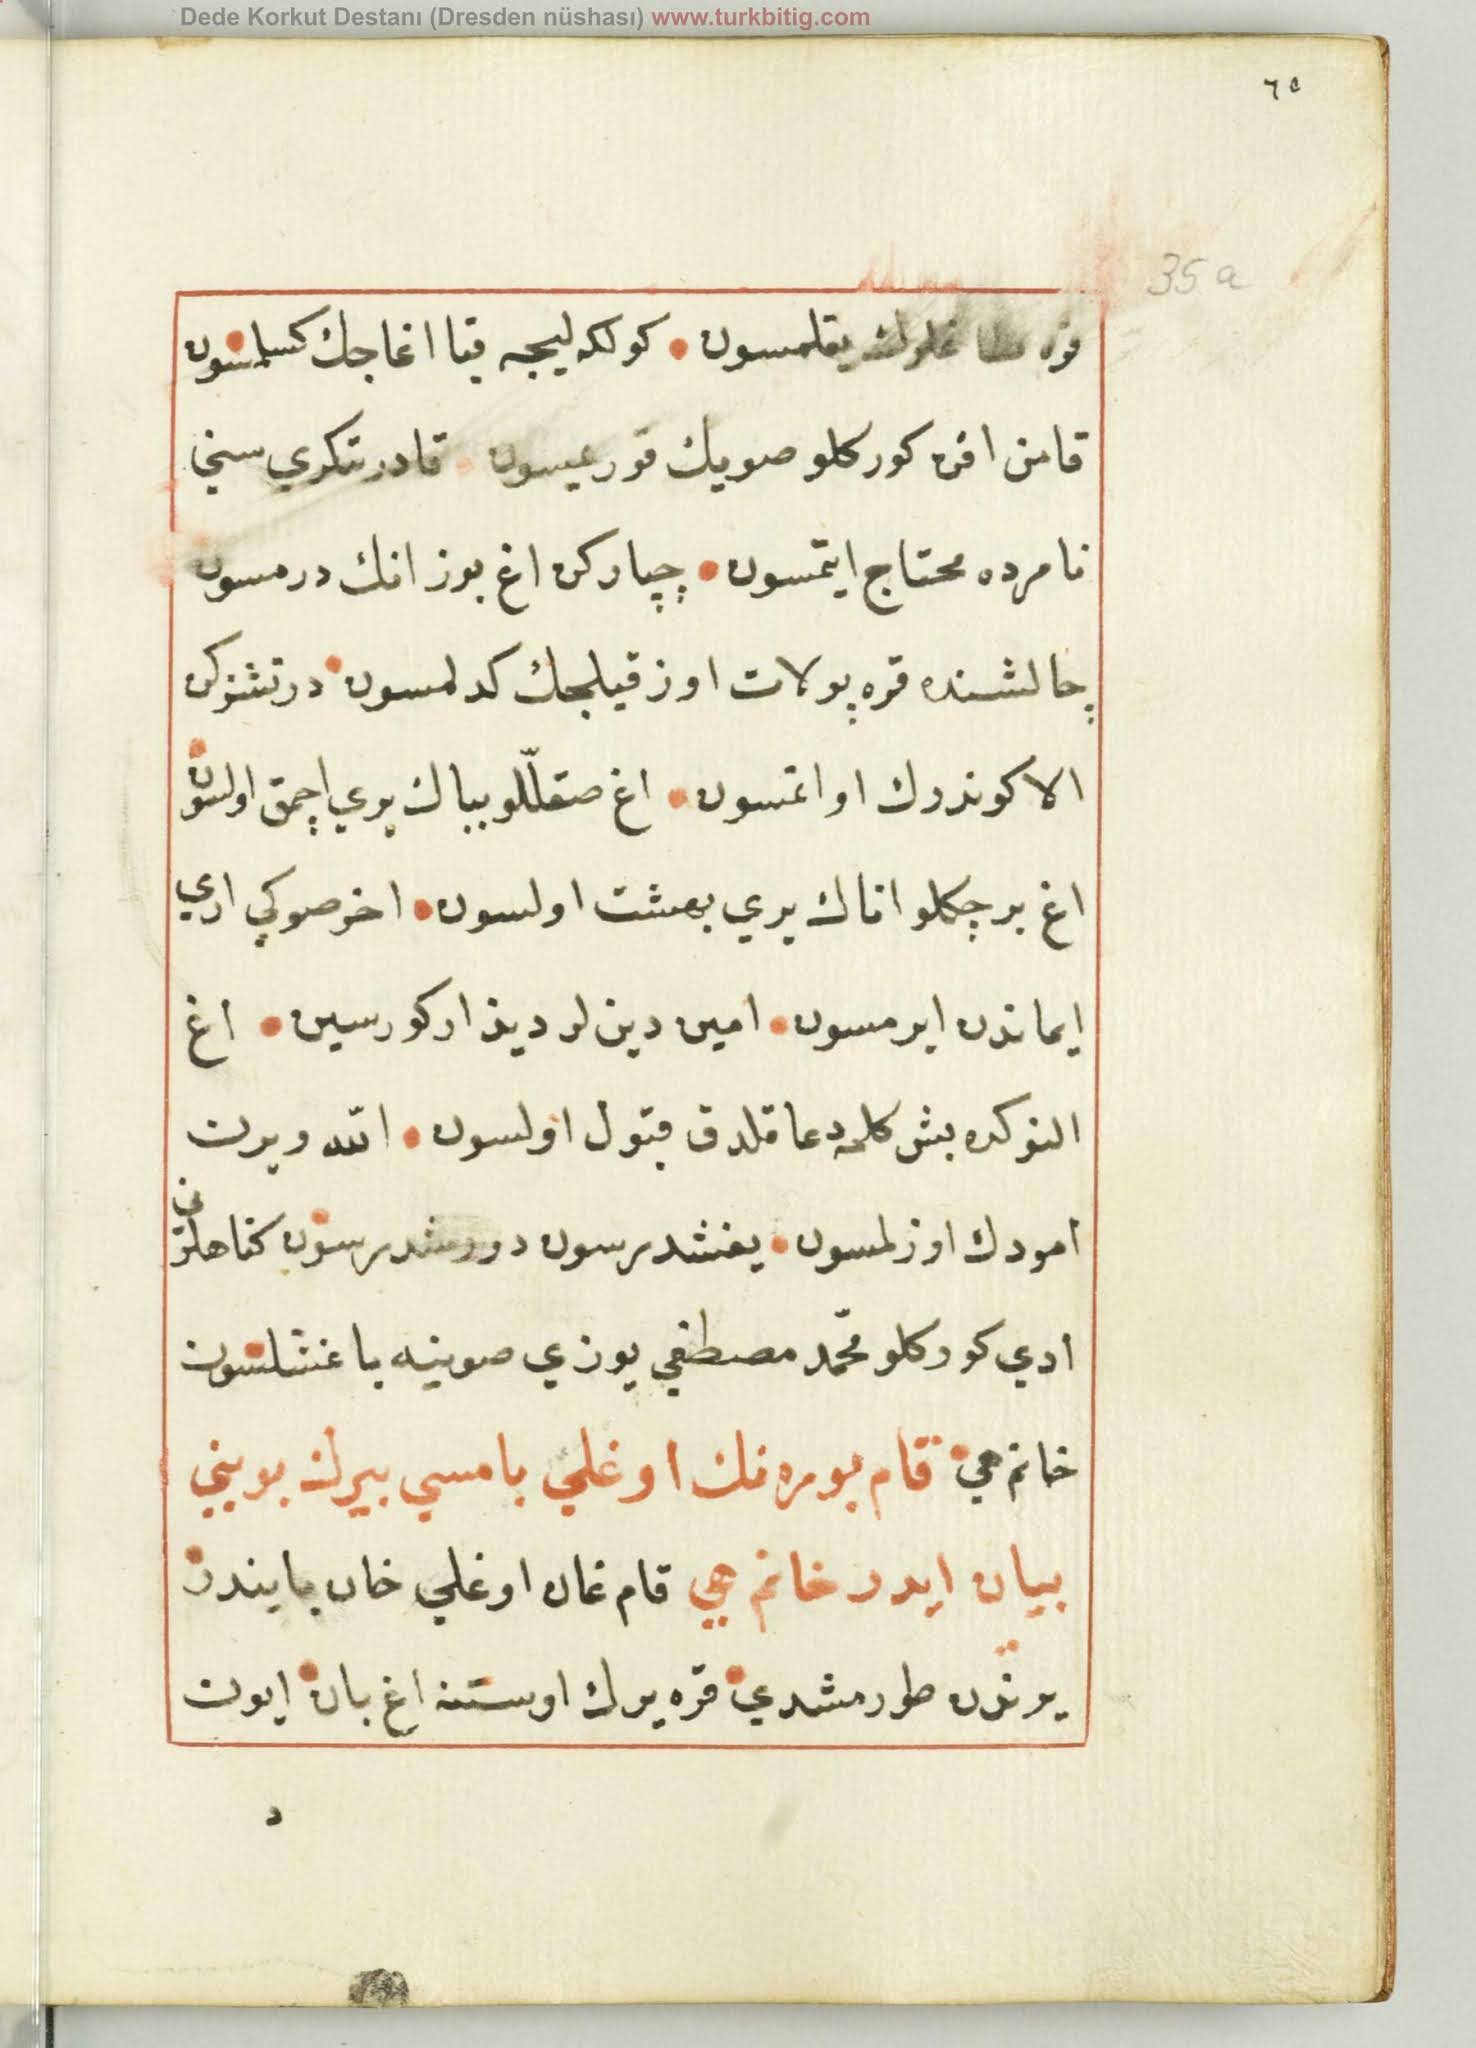 Dede Korkut Destanı (Dresden nüshası) www.turkbitig.com
٦٥
35 a
قره طاغلرك يقلمسون كولكه ليجه قبا اغاجك كسلمسون
قامن اقن كوركلو صويك قورعيسون قادر تكري سني
نامرده محتاج ايتمسون چپاركن اغ بوز اتك درمسون
چالشنده قره پولات اوز قيلجك كدلمسون درتشوركن
الا كوندرك اواتمسون اغ صقللو بباك يري اچمق اولسون
اغ برچكلو اناك يري بهشت اولسون اخر صوكي اري
ايماندن ايرمسون امين دين لر ديذار كورسين اغ
النوكده بش كلمه دعا قلدق قبول اولسون الله ويرن
امودك اوزلمسون يغشدرسون دورشدرسون كناهلرني
ادي كوركلو محمّد مصطفي يوزي صوينه باغشلسون
خانم هي قام بوره نك اوغلي بامسي بيرك بويني
بيان ايدر خانم هي قام غان اوغلي خان بايندر
يرندن طورمشدي قره يرك اوستنه اغ بان ايون
د